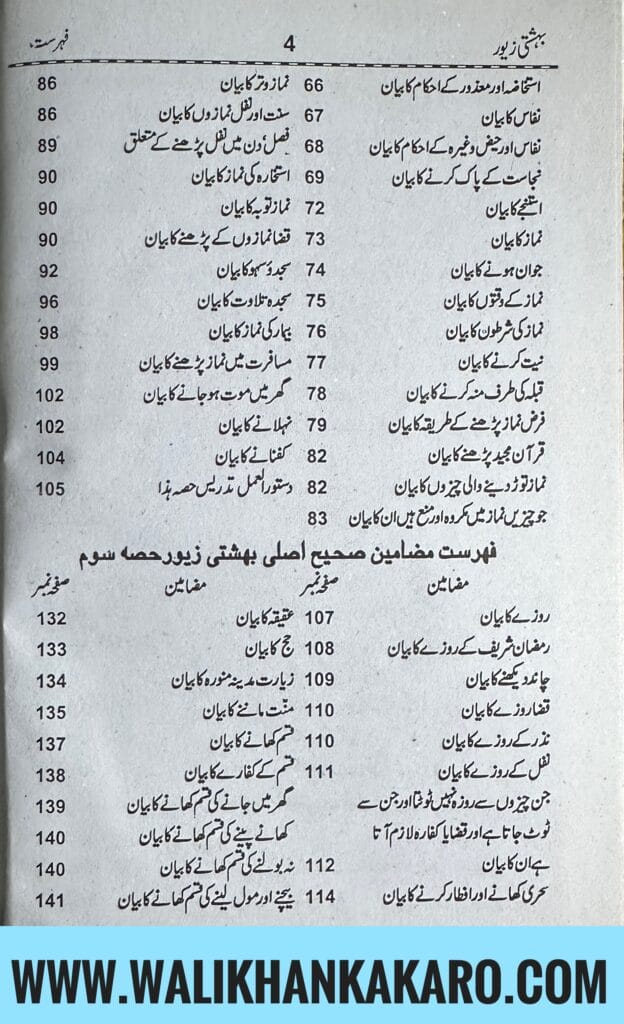 بہشتی زیور 4 فہرست
استحاضہ اور معذور کے احکام کا بیان 66 نماز وتر کا بیان 86
نفاس کا بیان 67 سنت اور نفل نمازوں کا بیان 86
نفاس اور حیض وغیرہ کے احکام کا بیان 68 فصل دن میں نفل پڑھنے کے متعلق 89
نجاست کے پاک کرنے کا بیان 69 استخارہ کی نماز کا بیان 90
استنجے کا بیان 72 نماز توبہ کا بیان 90
نماز کا بیان 73 قضا نمازوں کے پڑھنے کا بیان 90
جوان ہونے کا بیان 74 سجدۂ سہو کا بیان 92
نماز کے وقتوں کا بیان 75 سجدہ تلاوت کا بیان 96
نماز کی شرطوں کا بیان 76 بیمار کی نماز کا بیان 98
نیت کرنے کا بیان 77 مسافرت میں نماز پڑھنے کا بیان 99
قبلہ کی طرف منہ کرنے کا بیان 78 گھر میں موت ہو جانے کا بیان 102
فرض نماز پڑھنے کے طریقہ کا بیان 79 نہلانے کا بیان 102
قرآن مجید پڑھنے کا بیان 82 کفنانے کا بیان 104
نماز توڑ دینے والی چیزوں کا بیان 82 دستور العمل تدریس حصہ ہذا 105
جو چیزیں نماز میں مکروہ اور منع ہیں ان کا بیان 83
فہرست مضامین صحیح اصلی بھشتی زیور حصہ سوم
مضامین صفحہ نمبر مضامین صفحہ نمبر
روزے کا بیان 107 عقیقہ کا بیان 132
رمضان شریف کے روزے کا بیان 108 حج کا بیان 133
چاند دیکھنے کا بیان 109 زیارت مدینہ منورہ کا بیان 134
قضا روزے کا بیان 110 منّت ماننے کا بیان 135
نذر کے روزے کا بیان 110 قسم کھانے کا بیان 137
نفل کے روزے کا بیان 111 قسم کے کفارے کا بیان 138
جن چیزوں سے روزہ نہیں ٹوٹتا اور جن سے گھر میں جانے کی قسم کھانے کا بیان 139
ٹوٹ جاتا ہے اور قضا یا کفارہ لازم آتا کھانے پینے کی قسم کھانے کا بیان 140
ہے ان کا بیان 112 نہ بولنے کی قسم کھانے کا بیان 140
سحری کھانے اور افطار کرنے کا بیان 114 بیچنے اور مول لینے کی قسم کھانے کا بیان 141
WWW.WALIKHANKAKARO.COM